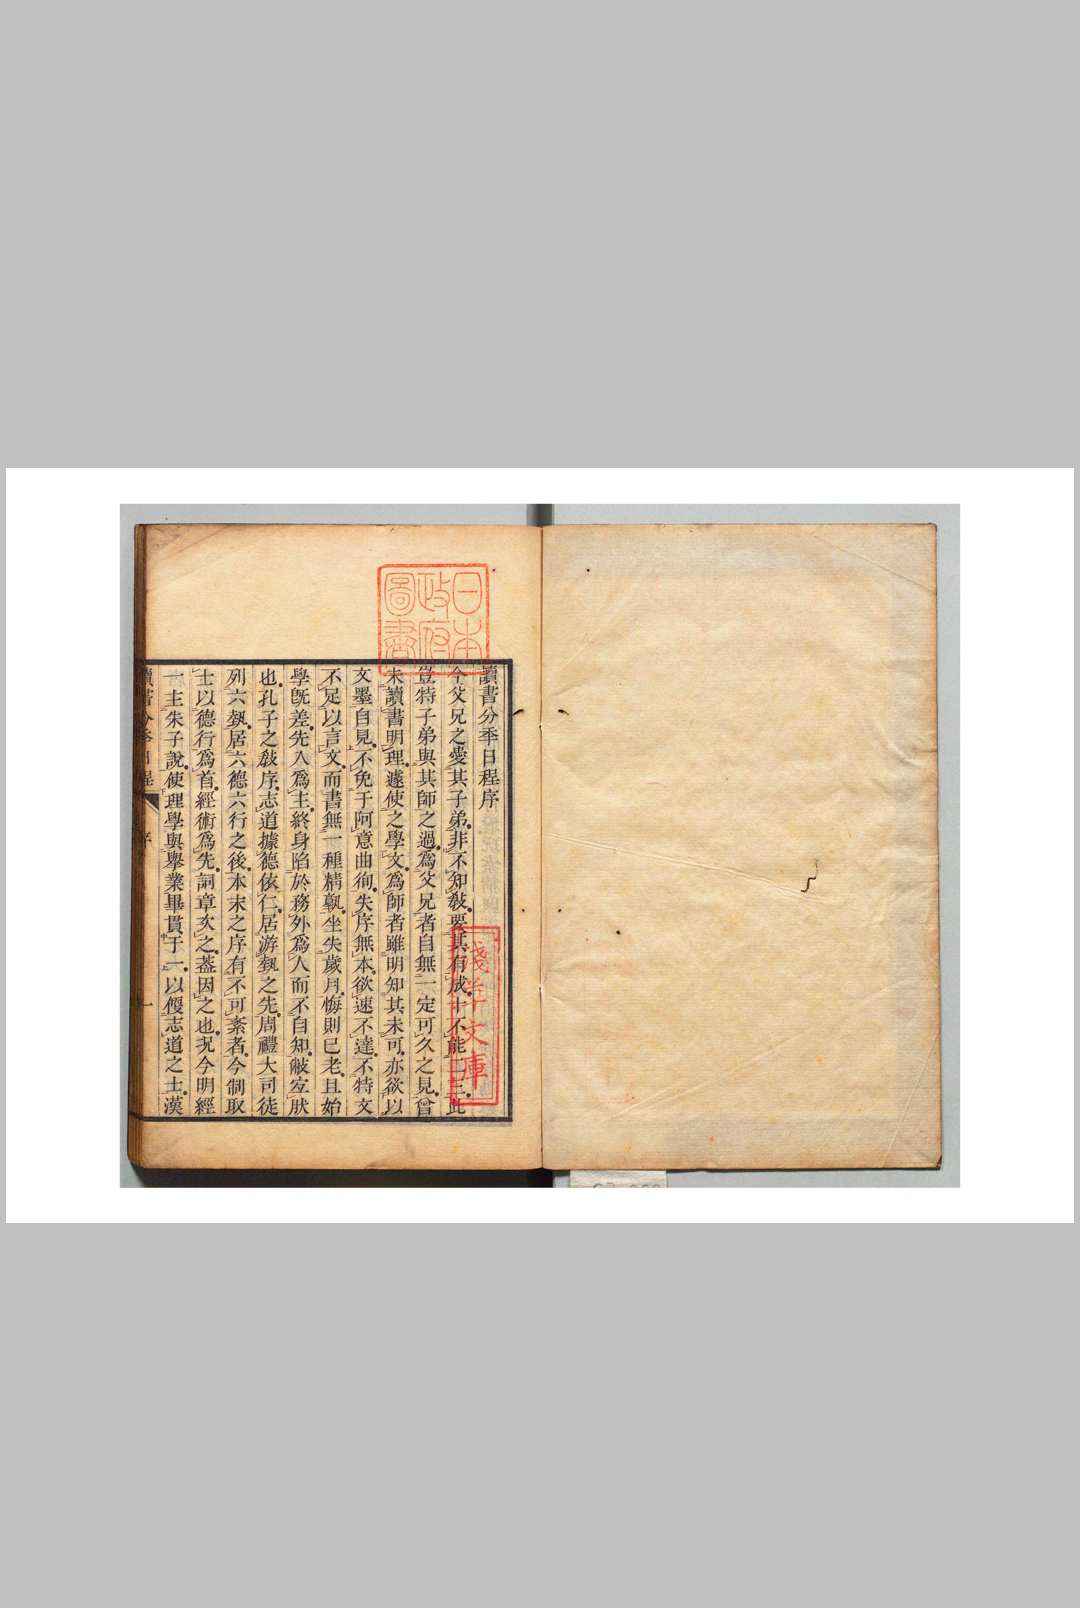 讀書分秊日程序
今父兄之愛其子弟非不知敎要其有成十不能二三此
豈特子弟與其師之過爲父兄者自無一定可久之見曾
未讀書明理遽使之學文爲師者雖明知其未可亦欲以
文墨自見不免于阿意曲徇失序無本欲速不達不特文
不足以言文而書無一種精孰坐失歲月悔則已老且始
學旣差先入爲主終身陷於務外爲人而不自知弊宐肰
也孔子之敎序志道據德依仁居游埶之先周禮大司徒
列六埶居六德六行之後本末之序有不可紊者今制取
士以德行爲首經術爲先詞章次之葢因之也况今明經
一主朱子說使理學與擧業畢貫于一以㥦志道之士漢
讀書分秊日程
序
一
日本
政府
圖書
淺草文庫